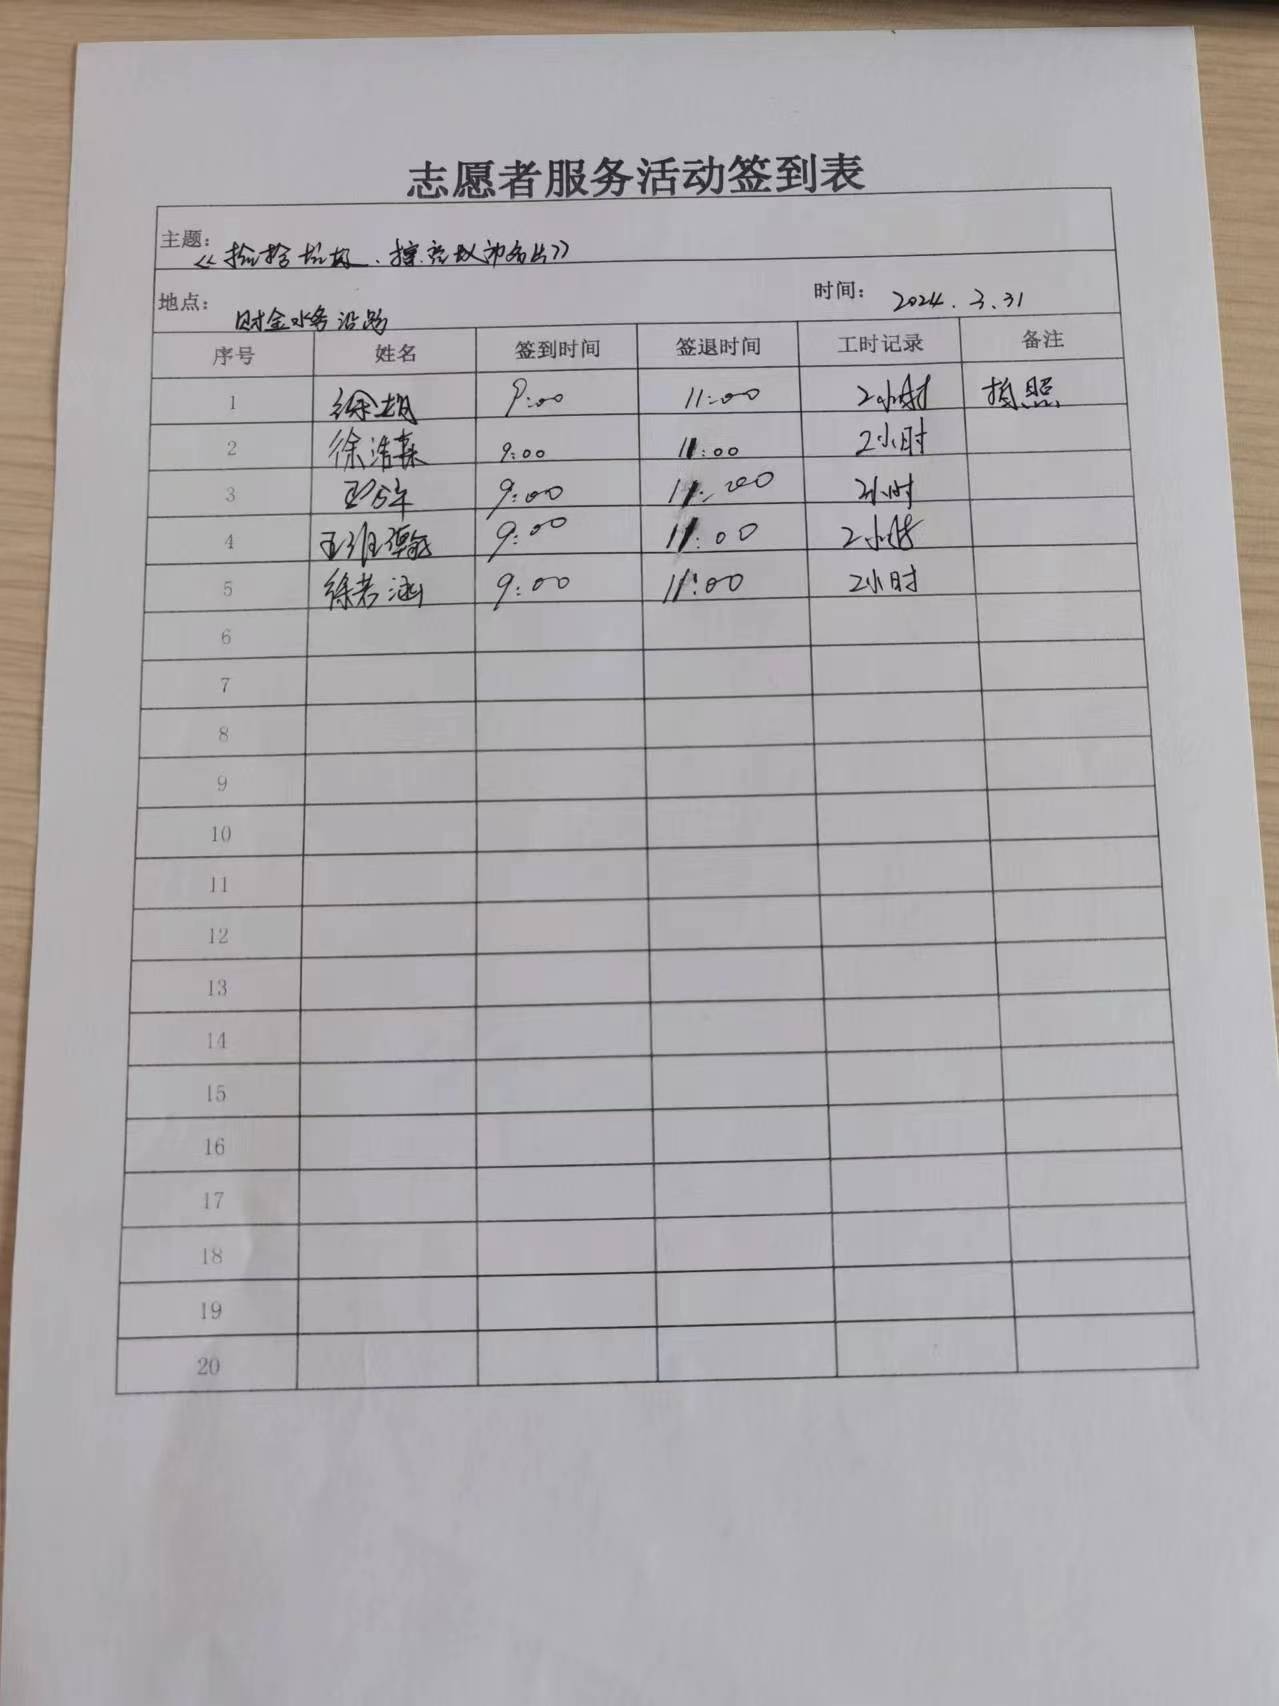 志愿者服务活动签到表
主题：《捡拾垃圾、擦亮城市名片》
地点：财金水务沿路 时间：2024.3.31
序号 姓名 签到时间 签退时间 工时记录 备注
1 9:00 11:00 2小时 拍照
2 徐浩森 9:00 11:00 2小时
3 9:00 11:00 2小时
4 9:00 11:00 2小时
5 徐若涵 9:00 11:00 2小时
6
7
8
9
10
11
12
13
14
15
16
17
18
19
20